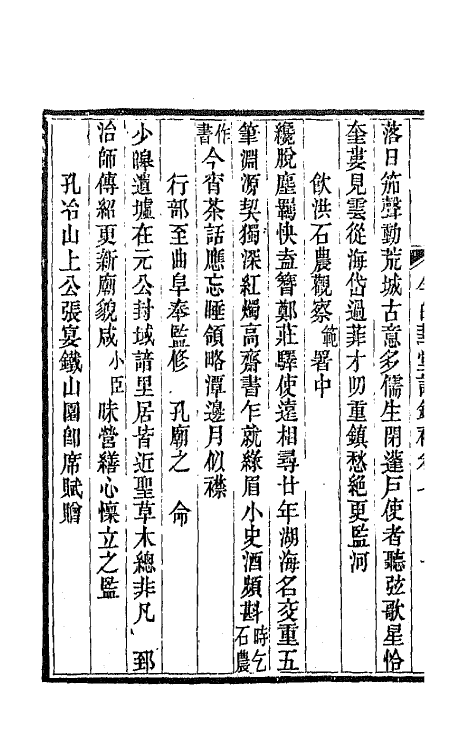 落日笳聲動荒城古意多儒生閉蓬戸使者聽弦歌星恰
奎婁見雲從海岱過菲才叨重鎮愁絶更監河
飲洪石農觀察範署中
纔脫塵羈快盍簪鄭莊驛使遠相尋廿年湖海名交重五
筆淵源契獨深紅燭高齋書乍就綠眉小史酒頻斟時乞石農
作書今宵茶話應忘睡領略潭邊月似襟
行部至曲阜奉監修 孔廟之 命
少皞遺墟在元公封域諳里居皆近聖草木總非凡 郅
治師傳紹更新廟貌咸小臣昧營繕心懍立之監
孔冶山上公張宴鐵山園卽席賦贈